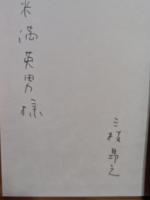 米満英男様
三枝昻之